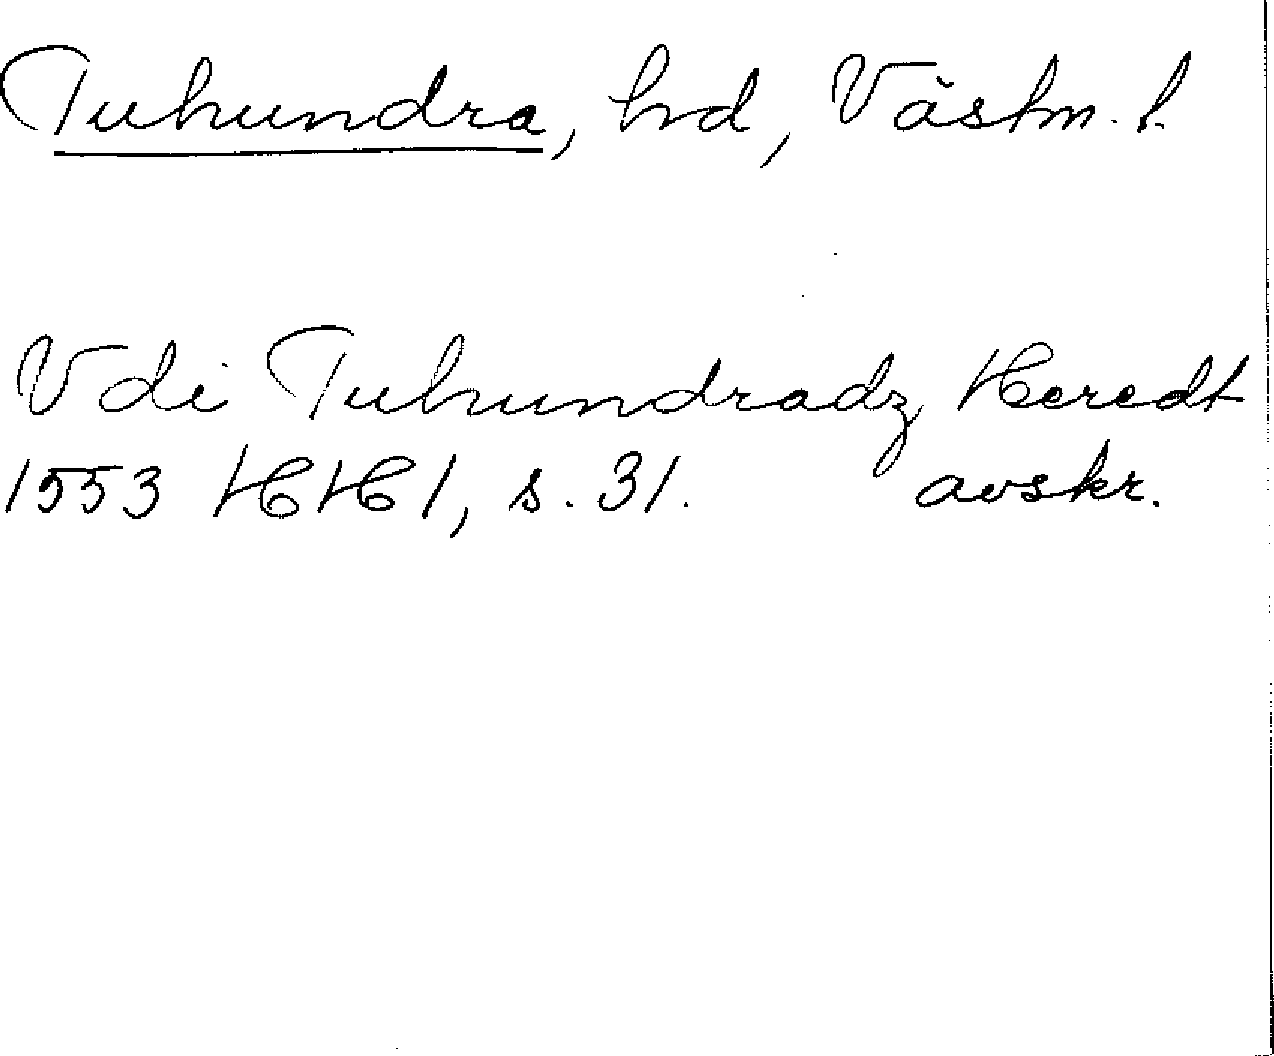 Tuhundra, hd, Västm. l.
Vdi Tuhundradz Heredt
1553 HH 1, s. 31. avskr.